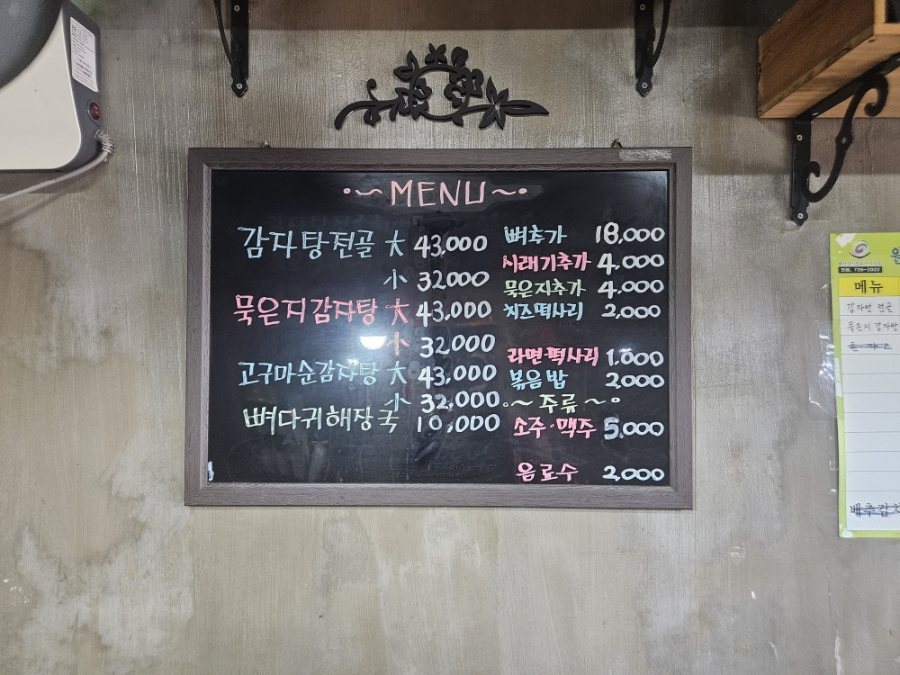 MENU
감자탕전골 大 43,000
小 32000
묵은지감자탕 大 43,000
小 32,000
고구마순감자탕 大 43,000
小 32,000
뼈다귀해장국 10,000
뼈추가 18,000
시래기추가 4,000
묵은지추가 4,000
치즈떡사리 2,000
라면·떡사리 1,000
볶음밥 2000
주류
소주·맥주 5,000
음료수 2,000
메뉴
감자탕 전골
묵은지 감자탕